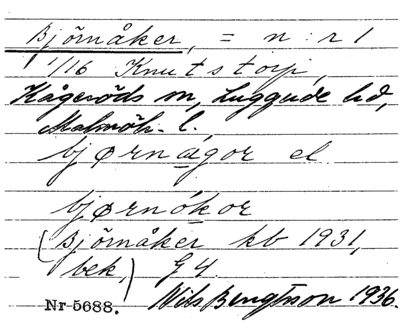 Björnåker, = n:r 1
1/16 Knutstorp,
Kågeröds sn, Luggude hd,
Malmöh. l.,
bjørnågor el.
bjørnókor
(Björnåker kb 1931,
bek,) G4
Nr 5688. Nils Bengtsson 1936.